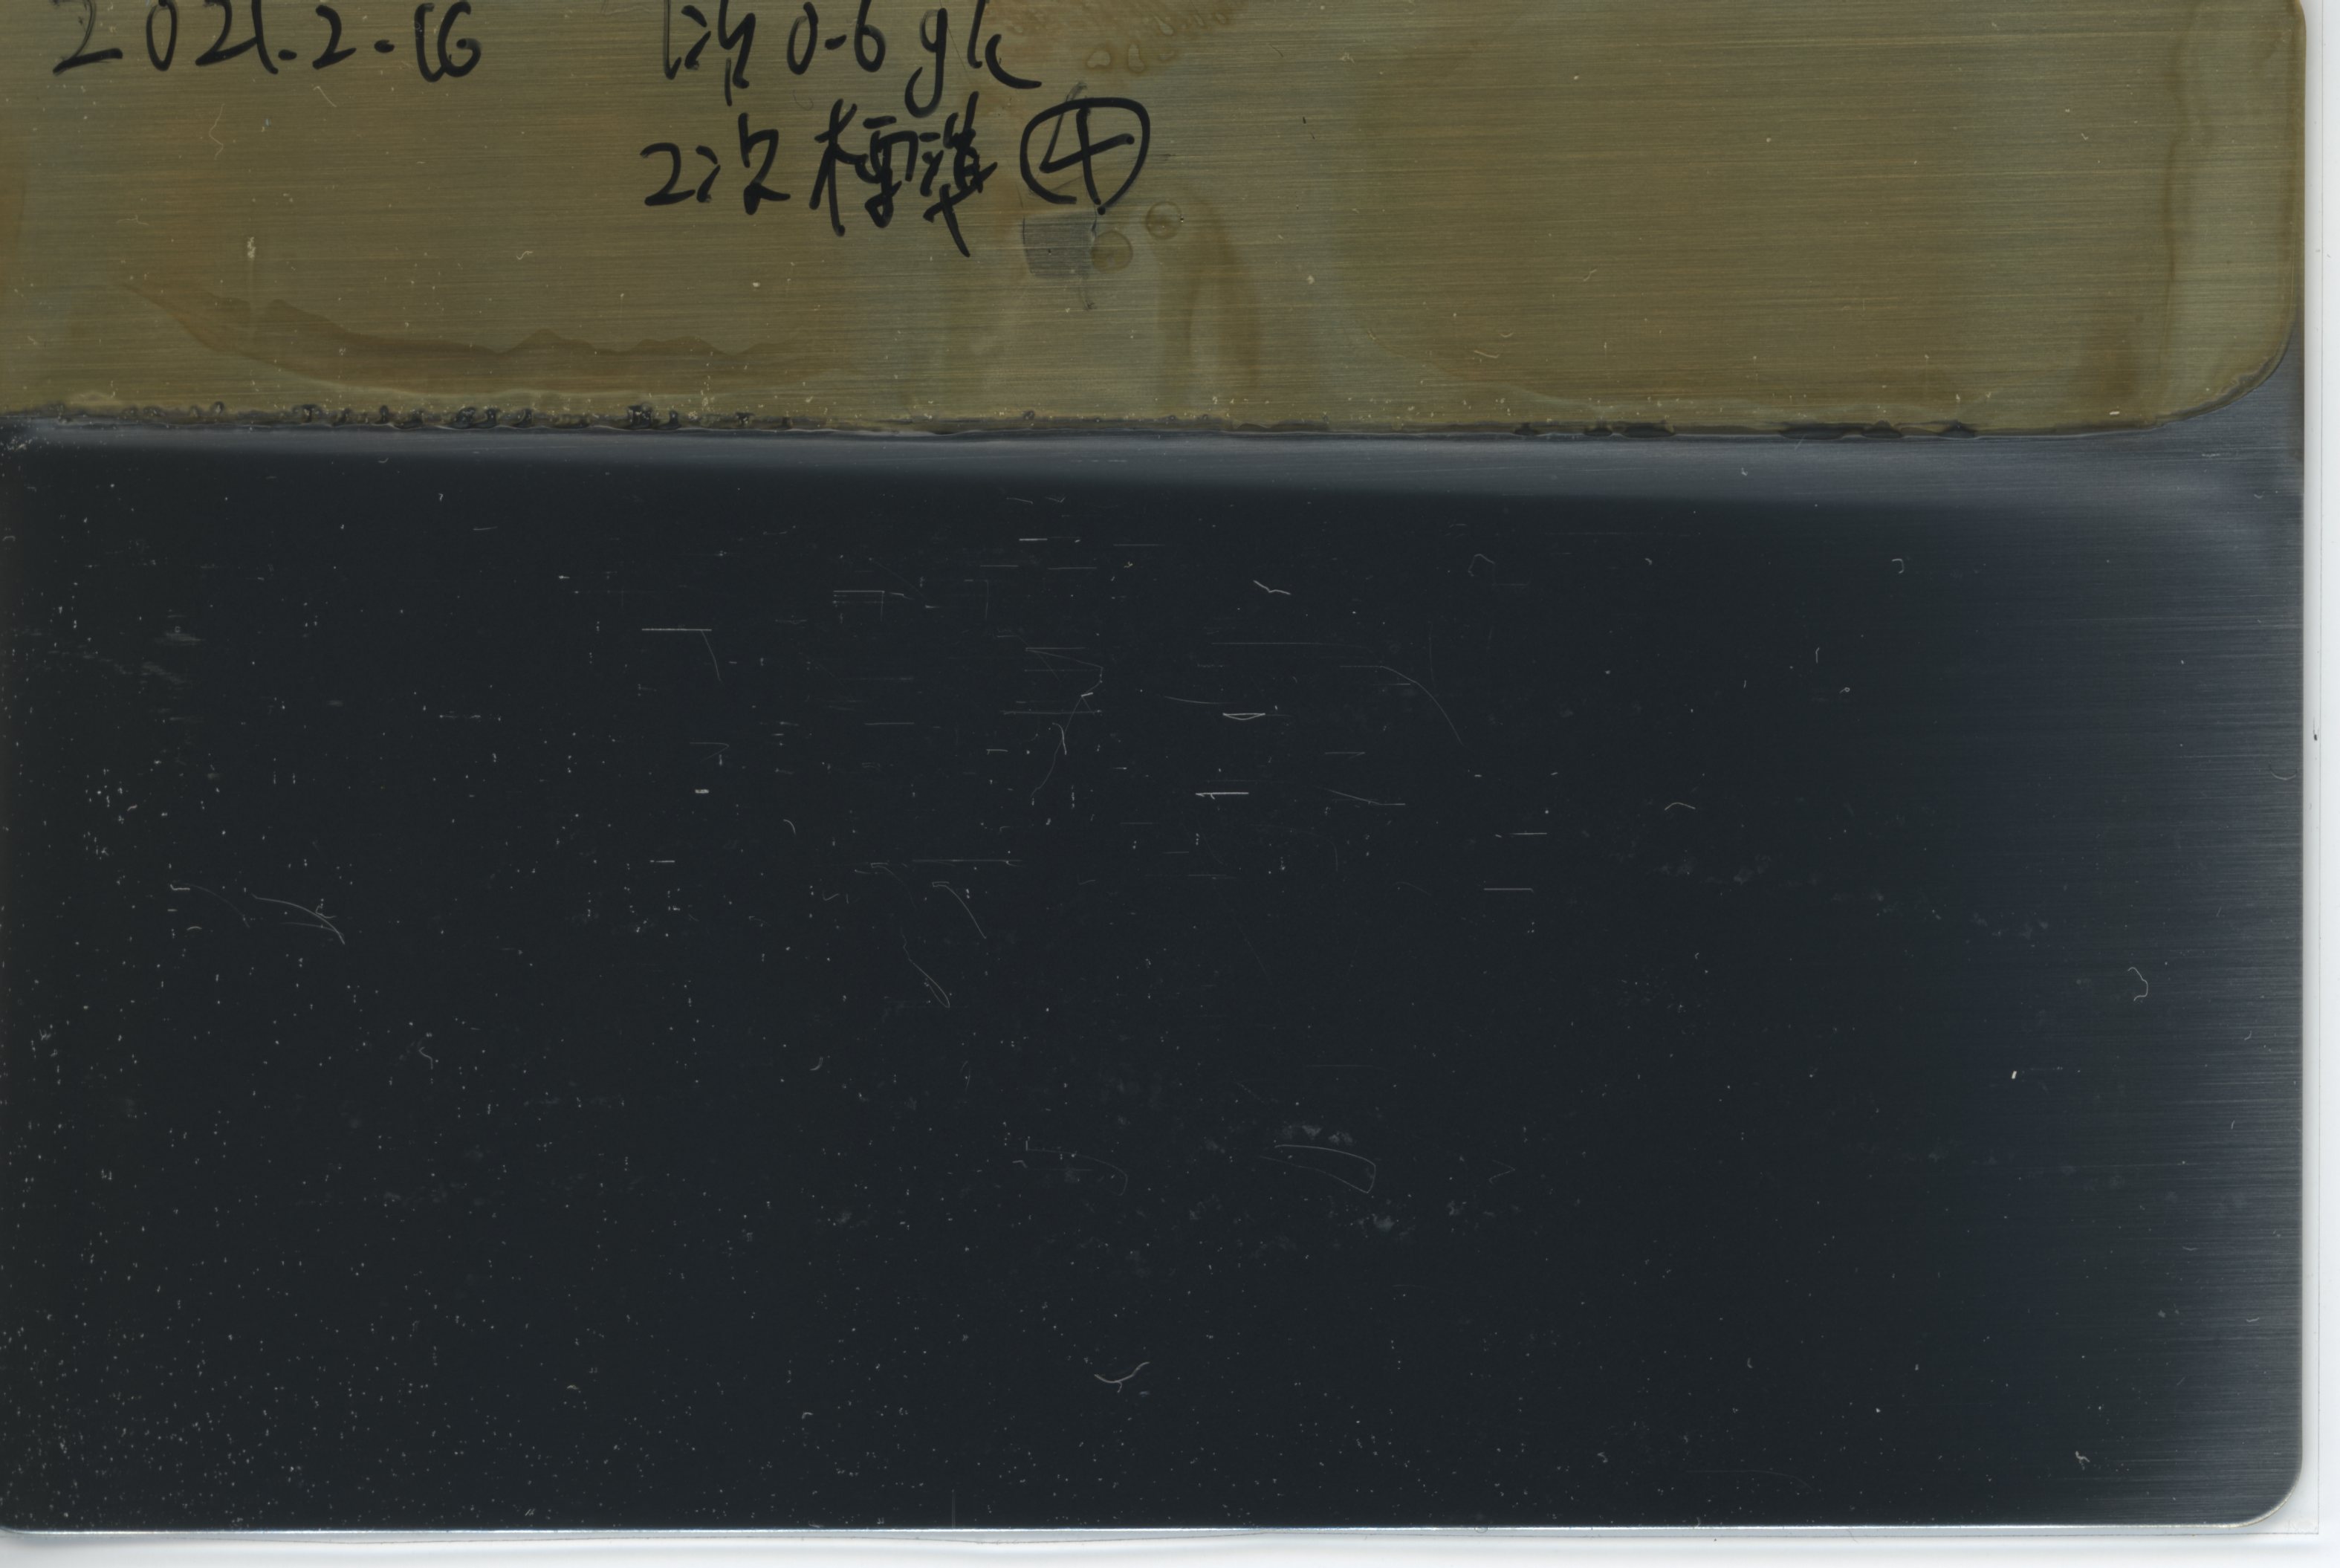 2021.2.16 1次 0.6 g/L
2次 標準 ④